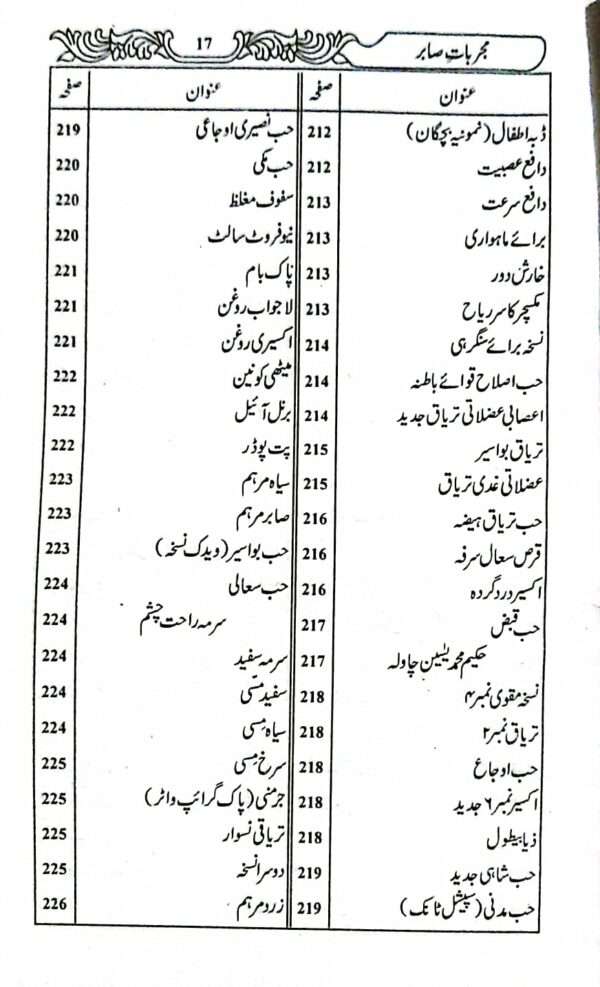 مجرباتِ صابر
17
عنوان صفحہ عنوان صفحہ
ڈبہ اطفال (نمونیہ بچگان) 212 حب نصیری اوجاعی 219
دافع عصبیت 212 حب مکی 220
دافع سرعت 213 سفوف مغلظ 220
برائے ماہواری 213 نیو فروٹ سالٹ 220
خارش دور 213 پاک بام 221
مکسچر کاسر ریاح 213 لاجواب روغن 221
نسخہ برائے سنگرہنی 214 اکسیری روغن 221
حب اصلاح قوائے باطنہ 214 میٹھی کونین 222
اعصابی عضلاتی تریاق جدید 214 برنل آئیل 222
تریاق بواسیر 215 پت پوڈر 222
عضلاتی غدی تریاق 215 سیاہ مرہم 223
حب تریاق ہیضہ 216 صابر مرہم 223
قرص سعال سرفہ 216 حب بواسیر (ویدک نسخہ) 223
اکسیر درد گردہ 216 حب سعالی 224
حب قبض 217 سرمہ راحت چشم 224
حکیم محمد یٰسین چاولہ 217 سرمہ سفید 224
نسخہ مقوی نمبر ۴ 218 سفید مسی 224
تریاق نمبر ۲ 218 سیاہ مِسی 224
حب اوجاع 218 سرخ مِسی 225
اکسیر نمبر ۶ جدید 218 جرمنی (پاک گرائپ واٹر) 225
ذیابیطول 218 تریاقی نسوار 225
حب شاہی جدید 219 دوسرا نسخہ 225
حب مدنی (سپیشل ٹانک) 219 زرد مرہم 226